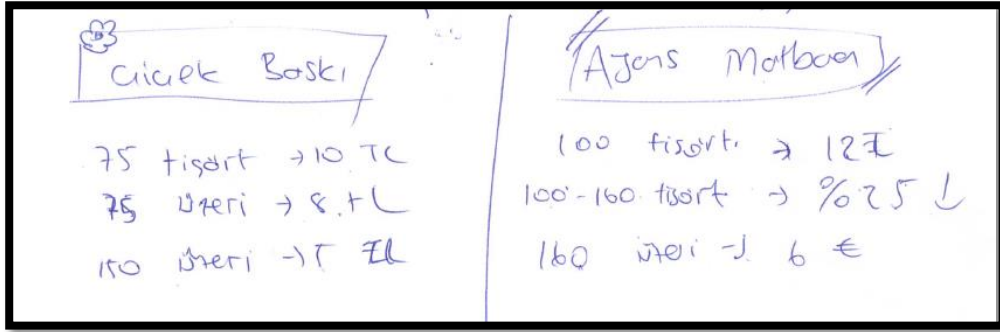 Çiçek Baskı
75 tişört → 10 TL
75 üzeri → 8 TL
150 üzeri → 5 TL
Ajans Matbaa
100 tişört → 12 ₺
100-160 tişört → %25 ↓
160 üzeri → 6 ₺